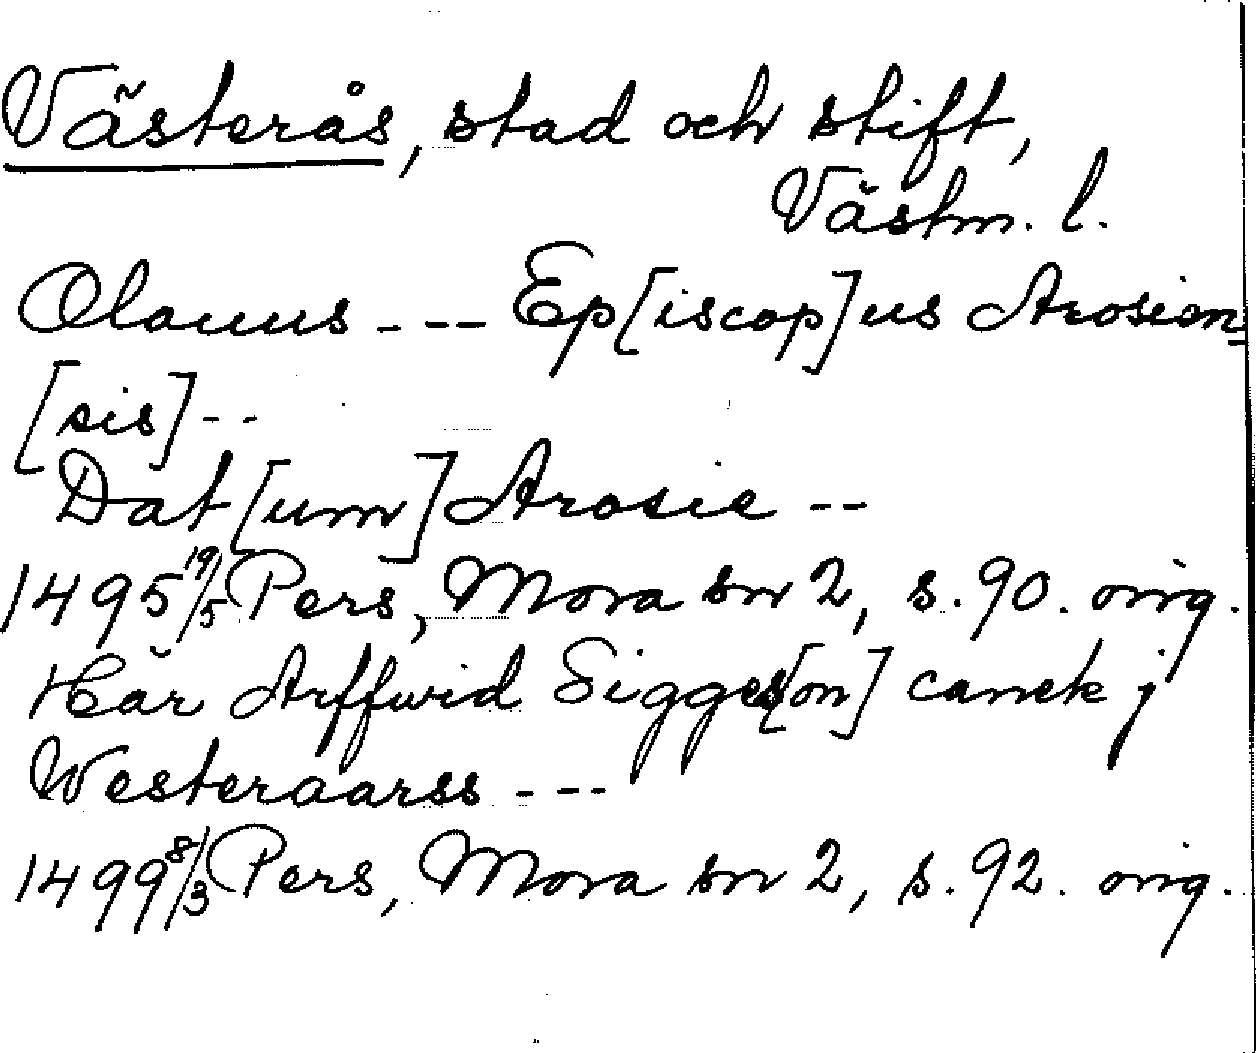 Västerås, stad och stift,
Västm. l.
Olauus - -- Ep[iscop]us Arosien
[sis] --
Dat[um] Arosie --
1495 19/5 Pers, Mora sn 2, s. 90. orig.
Här Arffwid Sigges[on] canek j
Westeraarss ---
1499 8/3 Pers, Mora sn 2, s. 92. orig.